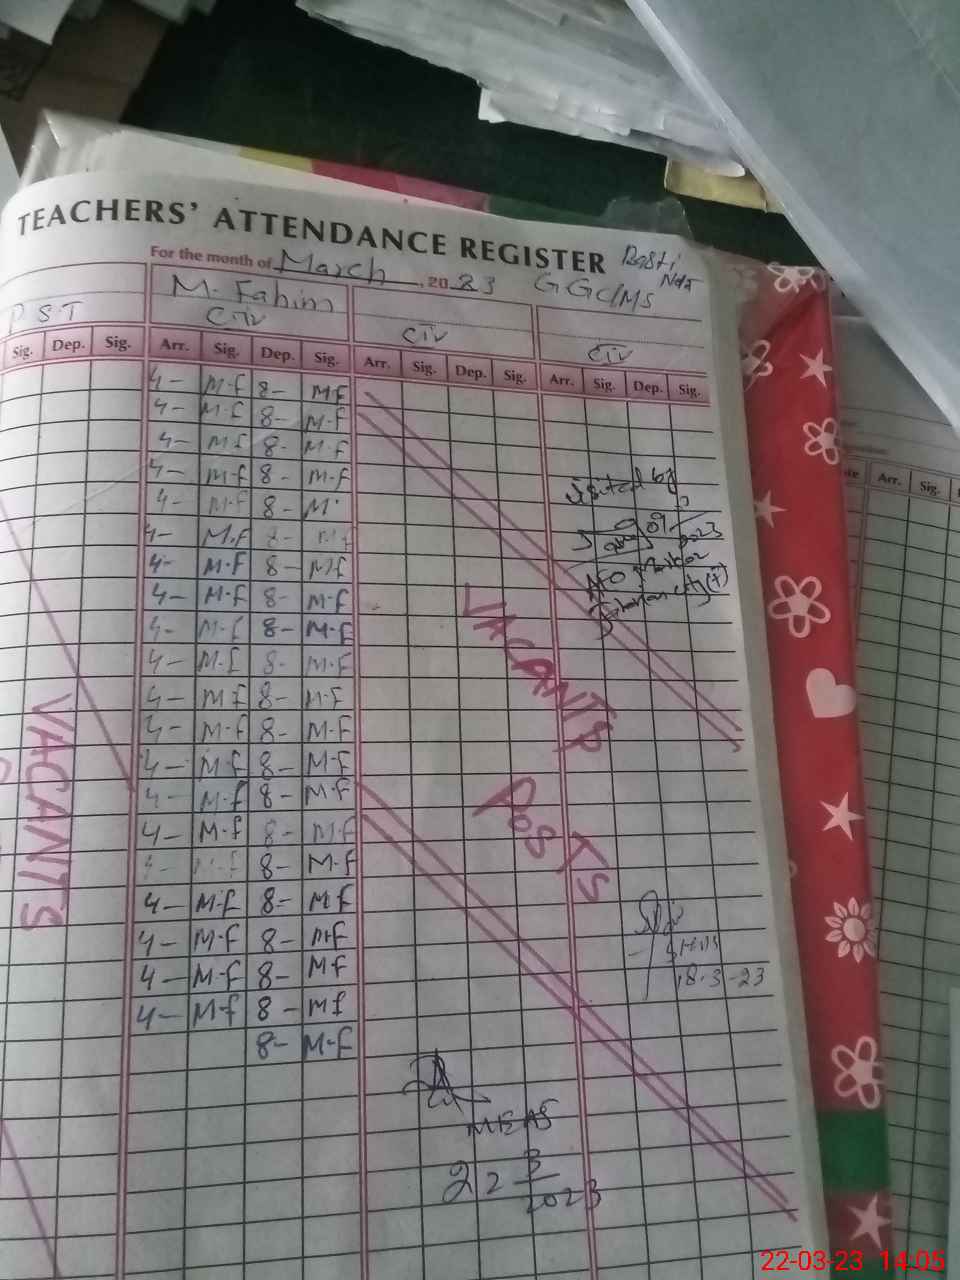 TEACHERS' ATTENDANCE REGISTER
For the month of March, 2023 GGC/MS Basti
M. Fahim
P.S.T Civ Civ Civ
Sig. Dep. Sig. Arr. Sig. Dep. Sig. Arr. Sig. Dep. Sig. Arr. Sig. Dep. Sig.
4- M-f 8- M-f
4- M-f 8- M-f
4- M-f 8- M-f
4- M-f 8- M-f
4- M-f 8- M-
4- M.f 8- M-f
4- M-F 8- M-f
4- M-f 8- M-f
4- M-f 8- M-f
4- M-f 8- M-f
4- M-f 8- M-f
4- M-f 8- M-f
4- M-f 8- M-f
4- M-f 8- M-f
4- M-f 8- M-f
4- M-f 8- M-f
4- M-f 8- M-f
4- M-f 8- M-f
4- M-f 8- M-f
4- M-f 8- M-f
8- M-F
visited by
09
2023
VACANTS
VACANTS
POSTS
18-3-23
MEAS
22 3
2023
Arr. Sig.
22-03-23 14:05